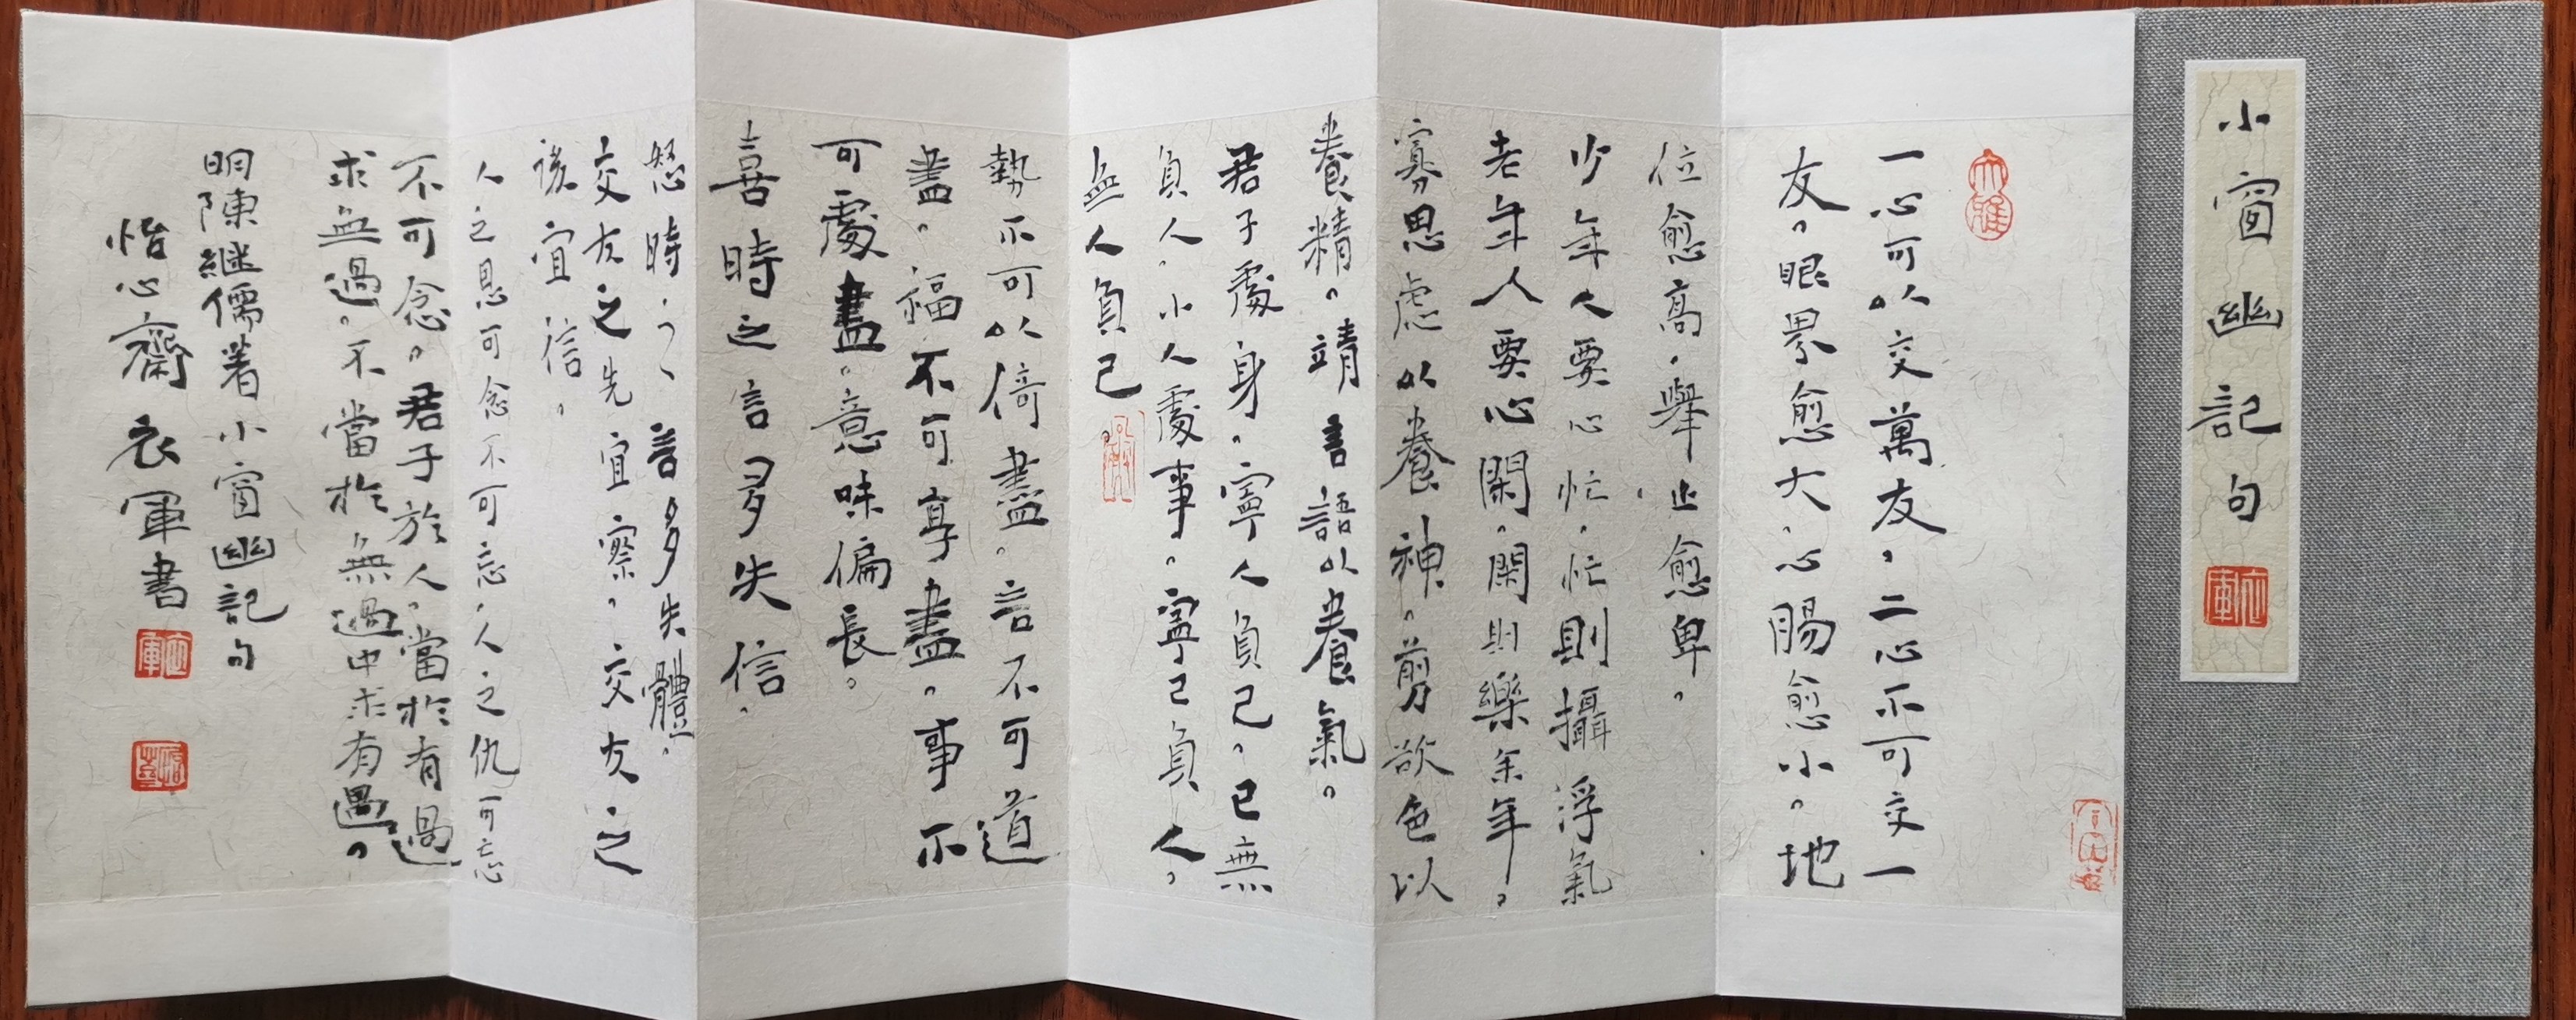 小窗幽記句
一心可以交萬友，二心不可交一
友。眼界愈大，心腸愈小。地
位愈高，舉止愈卑。
少年人要心忙，忙則攝浮氣
老年人要心閑，閑則樂余年。
寡思虑以養神。剪欲色以
養精。靖言語以養氣。
君子處身，寧人負己，己無
負人，小人處事。寧己負人，
無人負己
勢不可以倚盡，言不可道
盡，福不可享盡，事不
可處盡，意味偏長。
喜時之言多失信，
怒時之言多失體，
交友之先宜察，交友之
後宜信。
人之恩可念不可忘，人之仇可忘
不可念。君子於人，當於有過
求無過。不當於無過中求有過。
明陳継儒着小窗幽記句
怡心齋衣軍書